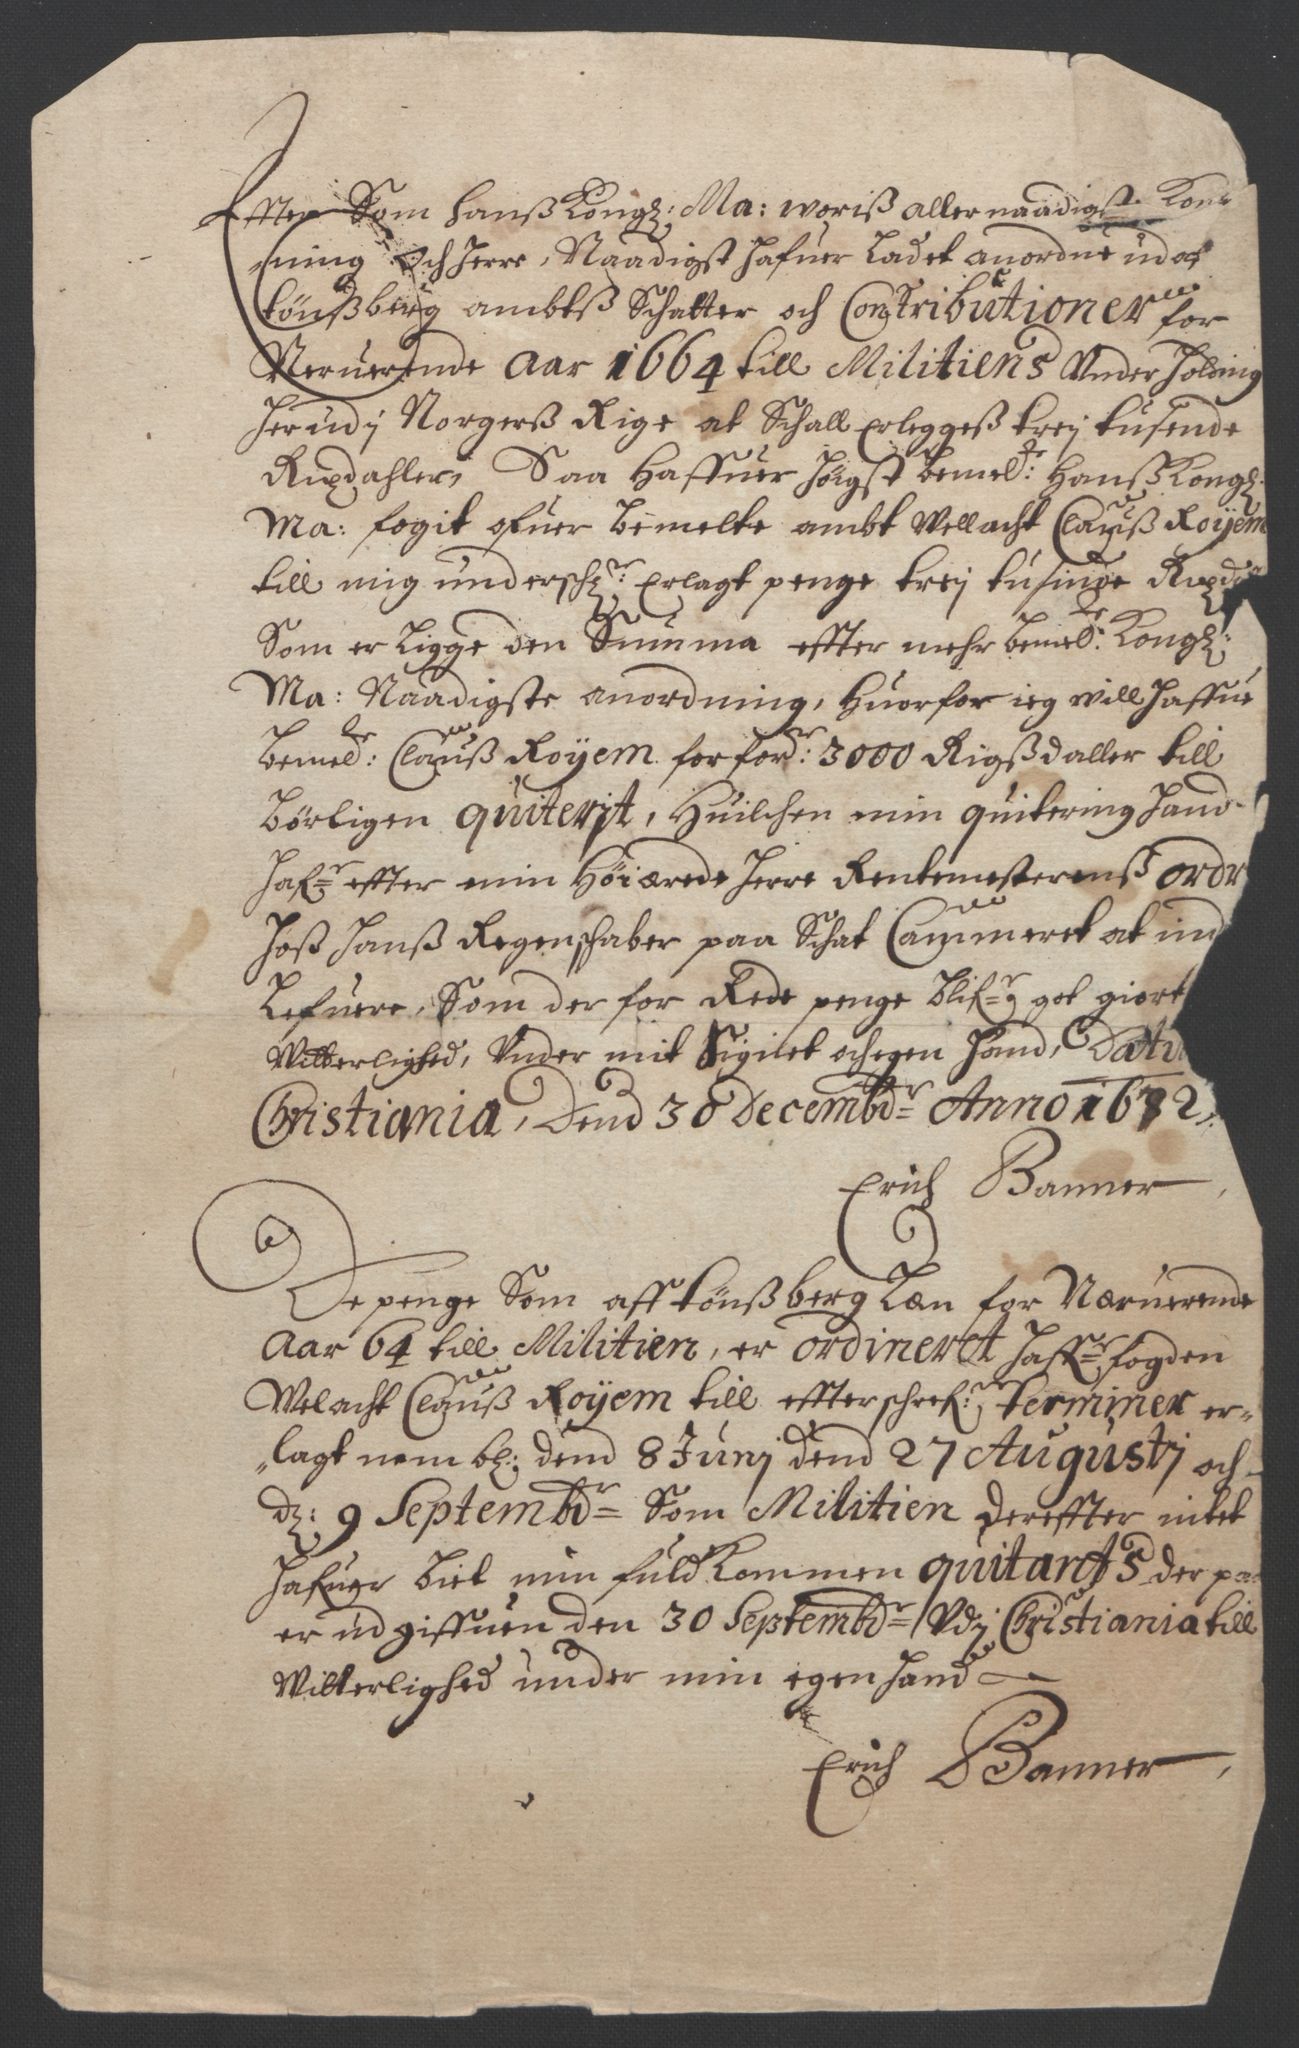 Effter Som Hanß Kongl: Ma: woriß aller naadigste Kon-
"ning Och Herre, Naadigst hafuer Ladet anordne ud af
tönßberg ambtß Schatter och Contributioner for
Neruerende Aar 1664 till Militiens Vnder Holding
her udj Norgerß Rige at Schall Erleggeß trej tusende
Rixdahler, Saa Haffuer högst bemelte: Hanß Kongl:
Ma: fogit ofuer bemelte ambt Wellacht Clauß Roÿem
till mig underschr: Erlagt penge trej tusinde Rixdr
Som er Ligge den Summa effter mehr bemelte: Kongl:
Ma: Naadigste anordning, Huorfor ieg will haffue
bemelte: Clauß Roÿem forfordr: 3000 Rigßdaller till
börligen quiterit, Huilchen min quitering hand
hafr effter min Höiærede Herre Rentemesterenß ordr
hoß hanß Regenschaber paa Schat Cammeret at ind
Lefuere, Som der for Rede penge blifr got giort
Witterlighed, Vnder mit Signet och egen Hand, Datu
Christiania, Dend 30 Decembr Anno 1672,
Erich Banner
De penge Som aff tönßberg Læn for Næruerende
Aar 64 till Militien, er ordineret haffr fogden
Welacht Clauß Roÿem till effterschrefr: terminer er-
"lagt neml: dend 8 Junj dend 27 Augustj och
dl: 9 Septembr Som Militien dereffter intet
hafuer biet min fuldkommen quitants der paa
er udgiffuen den 30 Septembr Vdj Christiania till
Witterlighed under min egen hand
Erich Banner